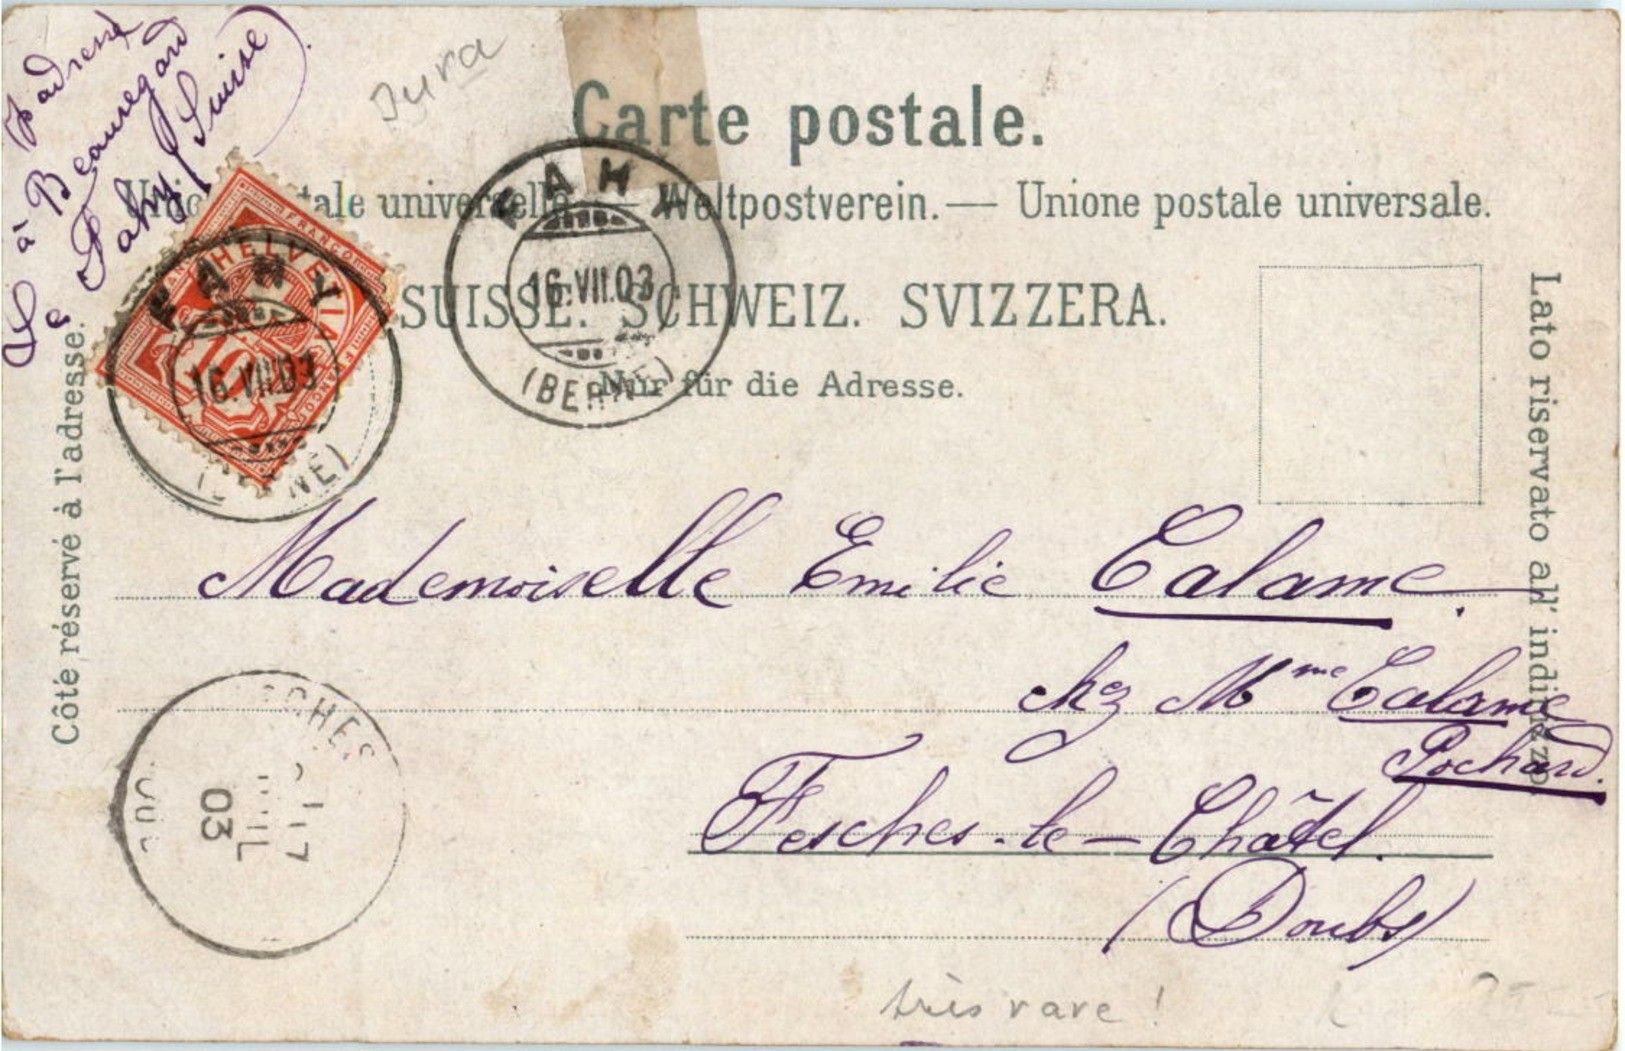 l'adresse
à Beauregard
Fahy (Suisse).
Jura
Carte postale.
Union postale universelle. — Weltpostverein. — Unione postale universale.
SUISSE. SCHWEIZ. SVIZZERA.
Nur für die Adresse.
Côté réservé à l'adresse.
Lato riservato all' indirizzo.
HELVETIA
FRANCO
10
FAHY
16.VII.03
(BERNE)
FAHY
16.VII.03
(BERNE)
Mademoiselle Emilie Calame.
chez Mme Calame
Pochard.
Fesches-le-Châtel.
(Doubs)
SCHES
17
JUIL
03
DOUB
très rare !